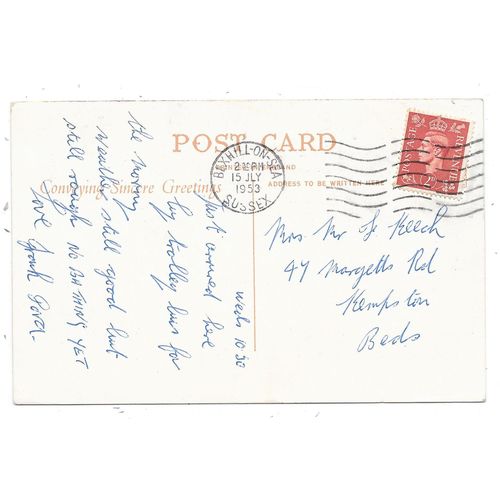 POST CARD
Conveying Sincere Greetings
ADDRESS TO BE WRITTEN HERE
BEXHILL-ON-SEA
2 PM
15 JLY
1953
SUSSEX
POSTAGE
REVENUE
Weds 10.30
Just arrived here
by trolley bus for
the morning
weather still good but
still rough NO BATHING YET
love
Mrs Mr Keech
47 Margetts Rd
Kempston
Beds